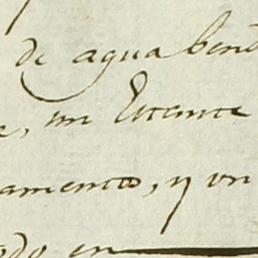 de agua bend
, un Estante
amento, y un
do en